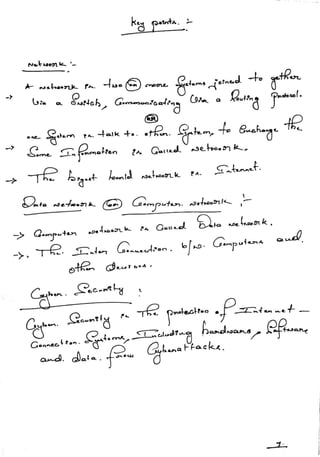 Key points :-
Network :-
A network is two (or) more systems joined to gether
→ Via a Switch, Communicating Via a Routing Protocol.
(OR)
→ one System is talk to other System, to Exchange the
Some Information is Called network.
→ The bigest world network is Internet.
Data network (or) Computer network :-
→ Computer network is Called Data network.
→ The Inter Connection b/w Computers and
other devices.
Cyber Security :
Cyber Security is The protection of Internet -
Connection Systems, Including hardware, Software
and data from Cyber attacks.
1